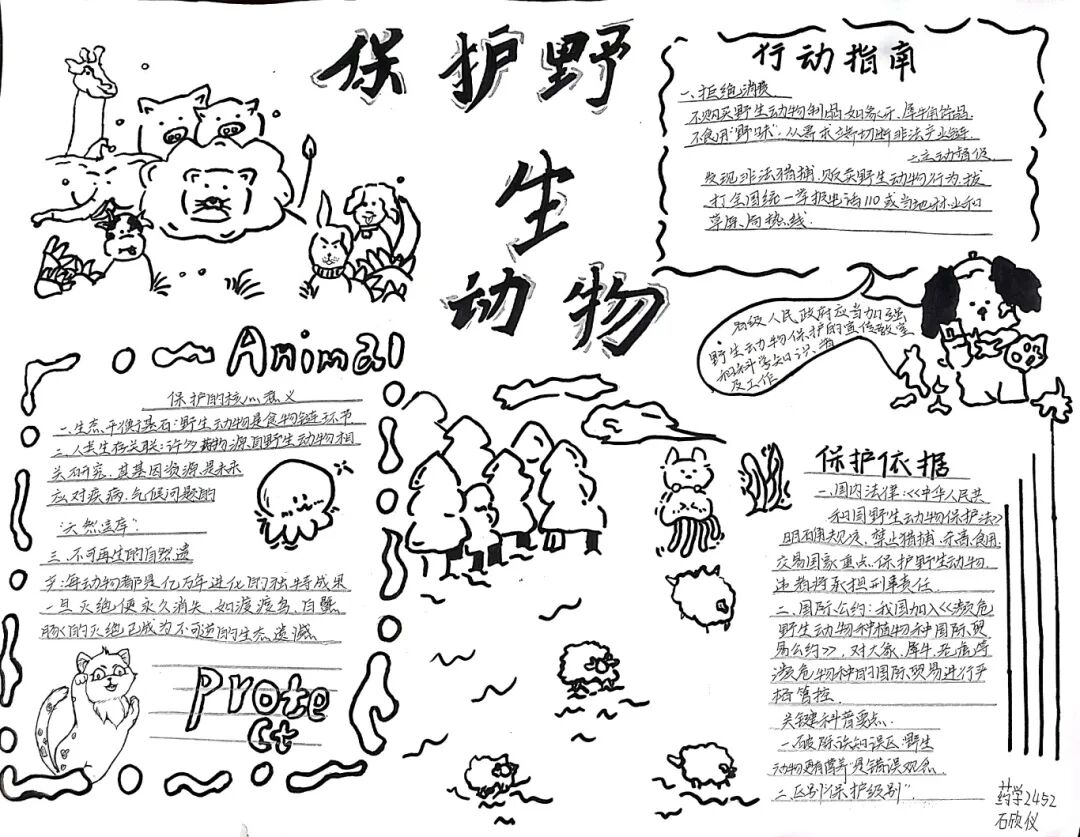 保护野
生
动物
行动指南
一、拒绝消费
不购买野生动物制品,如象牙、犀牛角饰品.
不食用"野味",从需求立断切断非法产业链.
发现非法猎捕、贩卖野生动物行为,拨
打全国统一举报电话110或当地林业和
草原局热线.
各级人民政府应当加强
野生动物保护的宣传教育
和科学知识普
及工作
Animal
保护的核心意义
一、生态平衡基石:野生动物是食物链环节
二、人类生存关联:许多药物源自野生动物相
关研究,其基因资源是未来
应对疾病、气候问题的
"天然造库"
三、不可再生的自然遗
产:每动物都是亿万年进化的独特成果
一旦灭绝便永久消失,如渡渡鸟、白鱀
豚的灭绝已成为不可逆的生态遗憾
Prote
ct
保护依据
一、国内法律:《中华人民共
和国野生动物保护法》
明确规定,禁止猎捕、杀害、食用、
交易国家重点保护野生动物,
违者将承担刑事责任.
二、国际公约:我国加入《濒危
野生动物种植物种国际贸
易公约》,对大象、犀牛、老虎等
濒危物种的国际贸易进行严
格管控
关键科普要点.
一、破除认知误区:野生
动物更有营养"是错误观念.
二、区别"保护级别".
药学2452
石欣仪